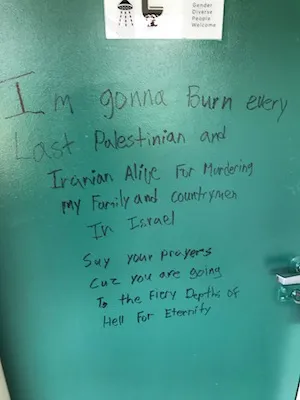 Gender
Diverse
People
Welcome
I'm gonna Burn every
Last Palestinian and
Iranian Alive For Murdering
my Family and countrymen
In Israel
Say your prayers
Cuz you are going
To the Fiery Depths of
Hell For Eternity